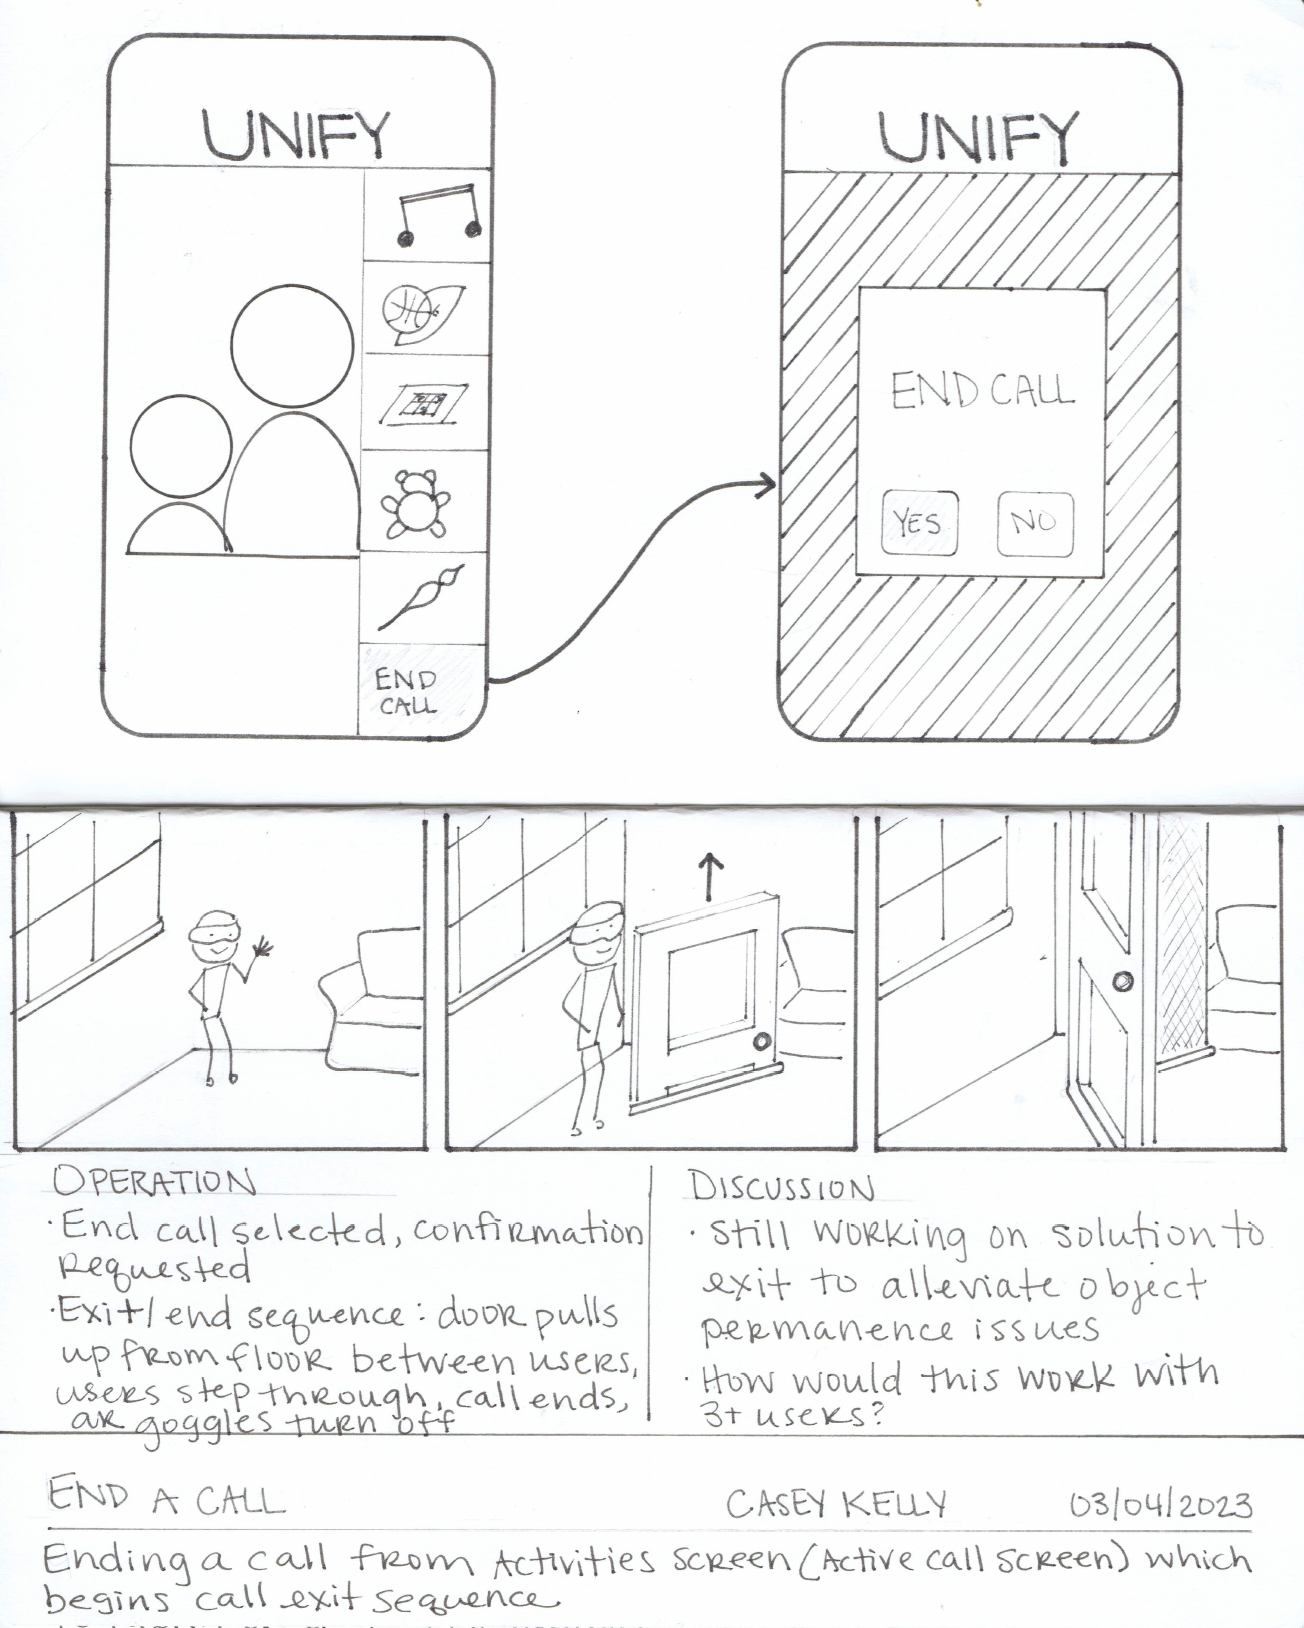 UNIFY
END
CALL
UNIFY
END CALL
YES
NO
OPERATION
· End call selected, confirmation
requested
· Exit/end sequence: door pulls
up from floor between users,
users step through, call ends,
ar goggles turn off
DISCUSSION
· Still working on solution to
exit to alleviate object
permanence issues
· How would this work with
3+ users?
END A CALL
CASEY KELLY
03/04/2023
Ending a call from Activities screen (Active call screen) which
begins call exit sequence